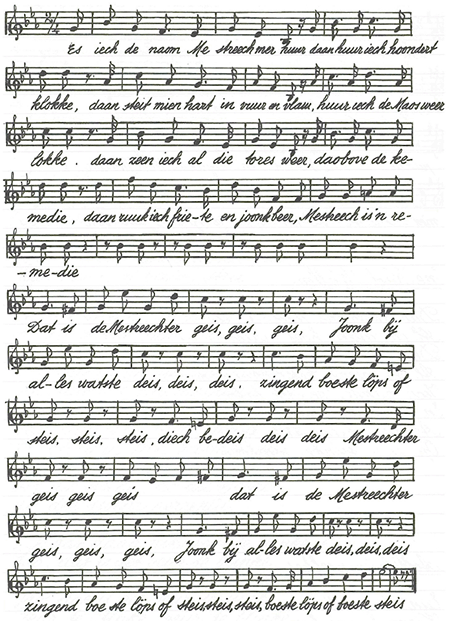 2/4
Es iech de naom Me streech mer huur daan huur iech hoondert
klokke, daan steit mien hart in vuur en vlam, huur iech de Maos weer
lokke. daan zeen iech al die tores weer, daobove de ke-
medie, daan ruuk iech frie-te en joonk beer, Mestreech is 'n re-
-me-die
Dat is de Mestreechter geis, geis, geis, Joonk bij
al-les watste deis, deis, deis, zingend boeste löps of
steis, steis, steis, diech be-deis deis deis Mestreechter
geis geis geis dat is de Mestreechter
geis, geis, geis, Joonk bij al-les watste deis, deis, deis
zingend boe ste löps of steis, steis, steis, boeste löps of boeste steis